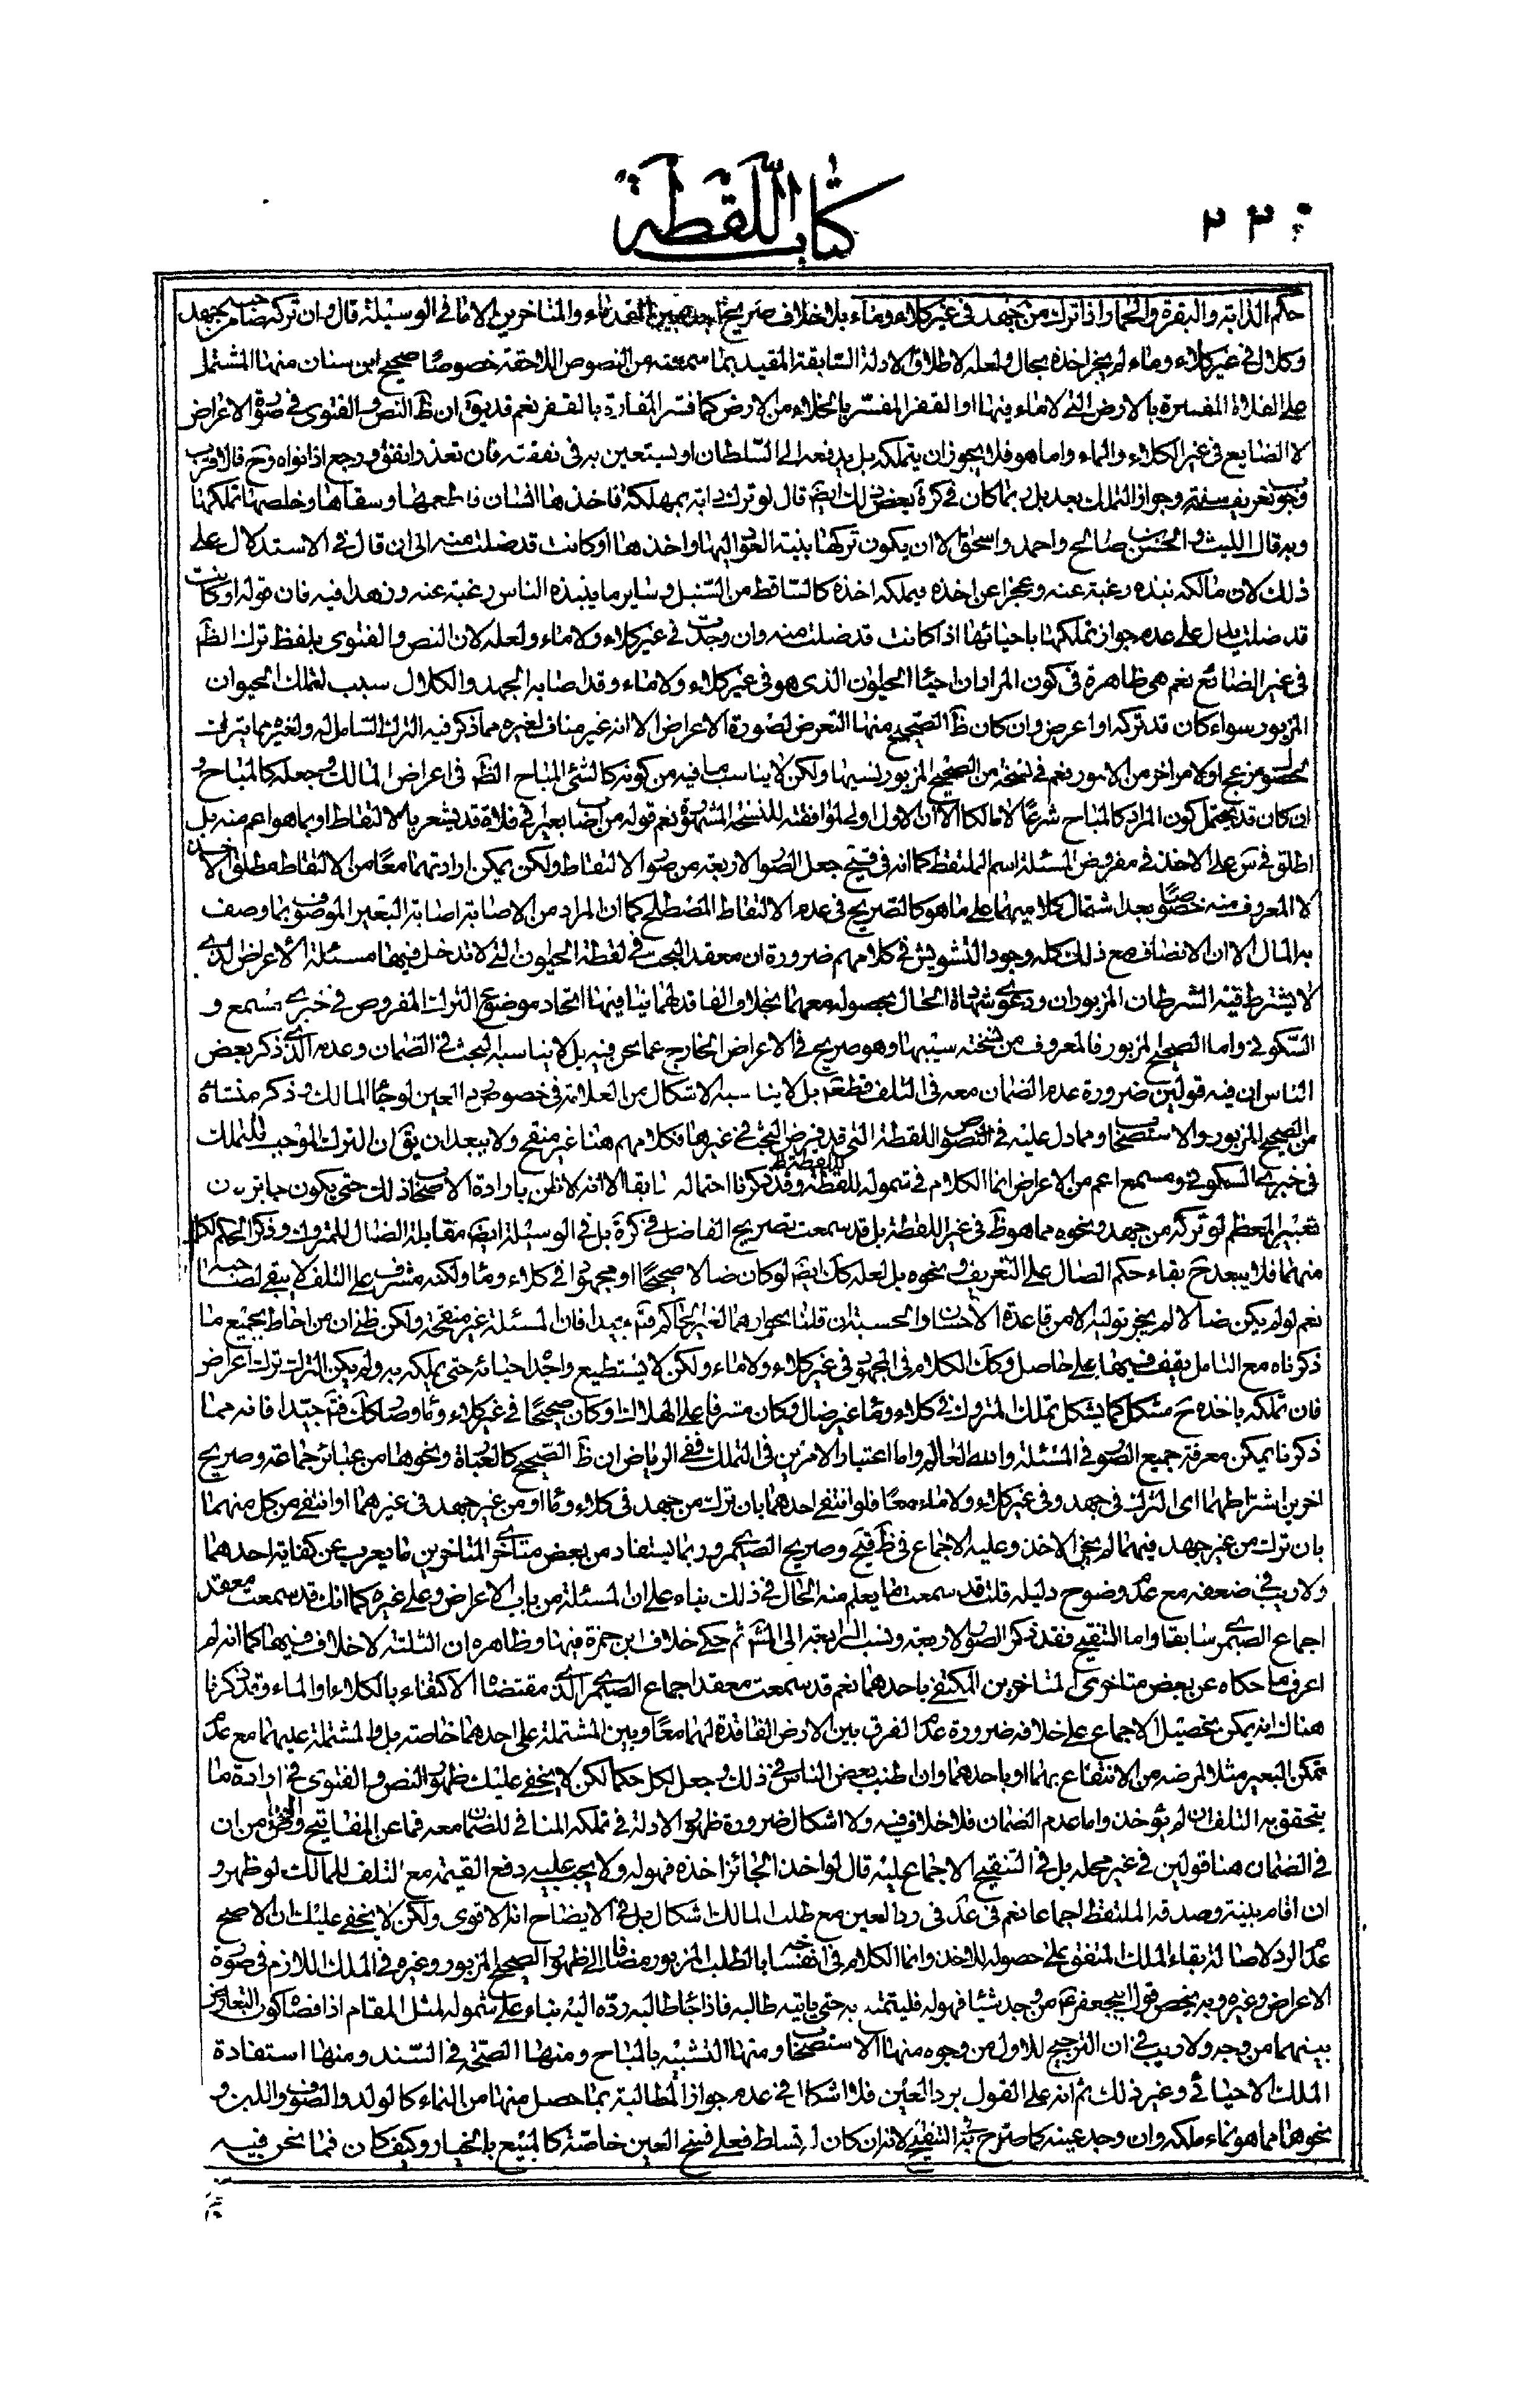 كتاب اللقطة
٢٣٠
حكم الدابة والبقرة والحمار اذا ترك من جهد في غير كلاء وماء بلا خلاف صريح من القدماء والمتاخرين الا ما في الوسيلة قال وان تركه صاحبه من جهد
وكلال في غير كلاء وماء لم يجز اخذه بحال ولعله لاطلاق الادلة السابقة المقيد بما سمعته من النصوص اللاحقة خصوصا صحيح ابن سنان منها المشتمل
على الفلاة المفسرة بالارض التي لا ماء فيها او القفر المفسر بالخلاء من الارض كما فسر المفازة بالقفر نعم قد يق ان ظ النص والفتوى في صورة الاعراض
لا الضايع في غير الكلاء والماء واما هو فلا يجوز ان يتملكه بل يدفعه الى السلطان او يستعين به في نفقته فان تعذر انفق ورجع اذا نواه وح قال اقرب
وجوب تعريفه سنة وجواز التملك بعد بل ربما كان في كرة بعض ذلك ايض قال لو ترك دابة بمهلكة فاخذها انسان فاطعمها وسقاها وخلصها تملكها
وبه قال الليث والحسن بن صالح واحمد واسحق الا ان يكون تركها بنية العود اليها واخذها او كانت قد ضلت منه الى ان قال في الاستدلال على
ذلك لان مالكه نبذه رغبة عنه وعجزا عن اخذه فيملكه اخذه كالساقط من السنبل وساير ما ينبذه الناس رغبة عنه وزهدا فيه فان قوله او كانت
قد ضلت يدل على عدم جواز تملكها باحيائها اذا كانت قد ضلت منه وان وجدت في غير كلاء ولا ماء ولعله لان النص والفتوى بلفظ ترك الظ
في غير الضائع نعم هي ظاهرة في كون المراد ان احياء الحيوان الذى هو في غير كلاء ولا ماء وقد اصابه الجهد والكلال سبب لتملك الحيوان
المزبور سواء كان قد تركه او اعرض وان كان ظ الصحيح منها التعرض لصورة الاعراض الا انه غير مناف لغيره مما ذكر فيه الترك الشامل له ولغيره مما يترك
لحصول عجز او لامر اخر من الامور نعم في نسخة من الصحيح المزبور نسيها ولكن لا يناسب ما فيه من كونه كالشئ المباح الظ في اعراض المالك وجعله كالمباح و
ان كان قد يحتمل كون المراد كالمباح شرعا لا مالكا الا ان الاول اولى لموافقته للنسخة المشهورة نعم قوله من اصاب بعيرا في فلاة قد يشعر بالالتقاط او بما هو اعم منه بل
اطلق في س على الاخذ في مفروض المسئلة اسم الملتقط كما انه في قيح جعل الصور الاربعة من صور الالتقاط ولكن يمكن ارادتهما معا من الالتقاط مطلق الاخذ
لا المعروف منه خصوصا بعد اشتمال كلاميهما على ما هو كالصريح في عدم الالتقاط المصطلح كما ان المراد من الاصابة اصابة البعير الموصوف بما وصف
به المال الا ان الانصاف مع ذلك كله وجود التشويش في كلامهم ضرورة ان معقد البحث في لقطة الحيوان التي لا تدخل فيها مسئلة الاعراض الذي
لا يشترط فيه الشرطان المزبوران ودعوى شهادة الحال بحصوله معهما بخلاف الفاقد لهما ينافيها اتحاد موضوع الترك المفروض في خبري مسمع و
السكوني واما الصحيح المزبور فالمعروف من نسخته سيبها وهو صريح في الاعراض الخارج عما نحن فيه بل لا يناسبه البحث في الضمان وعدمه الذي ذكر بعض
الناس ان فيه قولين ضرورة عدم الضمان معه في التلف قطعا بل لا يناسبه الاشكال من العلامة في خصوص رد العين لو جاء المالك وذكر منشاه
من الصحيح المزبور والاستصحاب ومما دل عليه في النصوص اللقطة التي قد فرض البحث في غيرها فكلامهم هنا غير منقح ولا يبعد ان يق ان الترك الموجب للتملك
في خبري السكوني ومسمع اعم من الاعراض انما الكلام في شموله للقطة وقد ذكرنا احتماله سابقا الا انه لا ظن بارادة الاصحاب ذلك حتى يكون جابرا
تعبير المعظم لو تركه من جهد ونحوه مما هو ظ في غير اللقطة بل قد سمعت تصريح الفاضل في كرة بل في الوسيلة ايض مقابلة الضال للمتروك وذكر الحكم لكل
منهما فلا يبعد ح بقاء حكم الضال على التعريف ونحوه بل لعله كك ايض لو كان ضالا صحيحا او مجهودا في كلاء وماء ولكنه مشرف على التلف لا يبقى لصاحبه
نعم لو لم يكن ضالا لم يجز توليه الا من قاعدة الاحسان او الحسبة ان قلنا بجوازهما لغير الحاكم فتامل جيدا فان المسئلة غير منقحة ولكن ظني ان من احاط بجميع ما
ذكرناه مع التامل يقف فيها على حاصل وكك الكلام في المجهود في غير كلاء ولا ماء ولكن لا يستطيع واجده احيائه حتى يملكه به ولم يكن الترك ترك اعراض
فان تملكه باخذه ح مشكل كما يشكل تملك المتروك في كلاء وماء غير ضال وكان مشرفا على الهلاك او كان صحيحا في غير كلاء وماء وصار كك فتامل جيدا فانه مما
ذكرنا يمكن معرفة جميع الصور في المسئلة والله العالم واما اعتبار الامرين في التملك ففي الرياض ان ظ الصحيح كالعبارة ونحوها من عبائر جماعة وصريح
اخرين اشتراطهما اى الترك في جهد وفي غير كلاء ولا ماء معا فلو انتفى احدهما بان ترك من جهد في كلاء وماء او من غير جهد في غيرهما او انتفى من كل منهما
بان ترك من غير جهد فيهما لم يجز الاخذ وعليه الاجماع في ظ قيح وصريح الصيمري وربما يستفاد من بعض متاخري المتاخرين ما يعرب عن كفاية احدهما
ولا ريب في ضعفه مع عدم وضوح دليله قلت قد سمعت ما يعلم منه الحال في ذلك بناء على ان المسئلة من باب الاعراض وعلى غيره كما انك قد سمعت معقد
اجماع الصيمري سابقا واما التنقيح فقد ذكر الصور الاربعة ونسب الرابعة الى المش ثم حكى خلاف ابن حمزة فيها وظاهره ان الثلثة لا خلاف فيها كما انه لم
اعرف ما حكاه عن بعض متاخرى المتاخرين المكتفى باحدهما نعم قد سمعت معقد اجماع الصيمري الذي مقتضاه الاكتفاء بالكلاء او الماء وقد ذكرنا
هناك انه يمكن تحصيل الاجماع على خلافه ضرورة عدم الفرق بين الارض الفاقدة لهما معا وبين المشتملة على احدهما خاصة بل والمشتملة عليهما مع عدم
تمكن البعير مثلا لمرضه من الانتفاع بهما او باحدهما وان اطنب بعض الناس في ذلك وجعل لكل حكما لكن لا يخفى عليك ظهور النص والفتوى في ارادة ما
يتحقق به التلف ان لم يؤخذ واما عدم الضمان فلا خلاف فيه ولا اشكال ضرورة ظهور الادلة في تملكه المنافي للضمان معه فما عن المفاتيح من ان
في الضمان هنا قولين في غير محله بل في التنقيح الاجماع عليه قال لو اخذ الجائز اخذه فهو له ولا يجب عليه دفع القيمة مع التلف للمالك لو ظهر و
ان اقام بينة وصدقه الملتقط اجماعا نعم في عد في رد العين مع طلب المالك اشكال بل في الايضاح انه الاقوى ولكن لا يخفى عليك ان الاصح
عدم الرد لاصالة بقاء الملك المتفق على حصوله للاخذ وانما الكلام في انفساخه بالطلب المزبور مضافا الى ظهور الصحيح المزبور وغيره في الملك اللازم في صورة
الاعراض وغيره وبه يخص قول ابي جعفر ع من وجد شيئا فهو له فليتمتع به حتى ياتيه طالبه فاذا جاء طالبه رده اليه بناء على شموله لمثل المقام اذ اقصاه كون التعارض
بينهما من وجه ولا ريب في ان الترجيح للاول من وجوه منها الاستصحاب ومنها التشبيه بالمباح ومنها الصحة في السند ومنها استفادة
الملك الاحيائي وغير ذلك ثم انه على القول برد العين فلا اشكال في عدم جواز المطالبة بما حصل منها من النماء كالولد والصوف واللبن و
نحوها مما هو نماء ملكه وان وجد عينه كما صرح به في التنقيح لانه ان كان له تسلط فعلى فسخ العين خاصة كالمبيع بالخيار وكيف كان فما نحن فيه